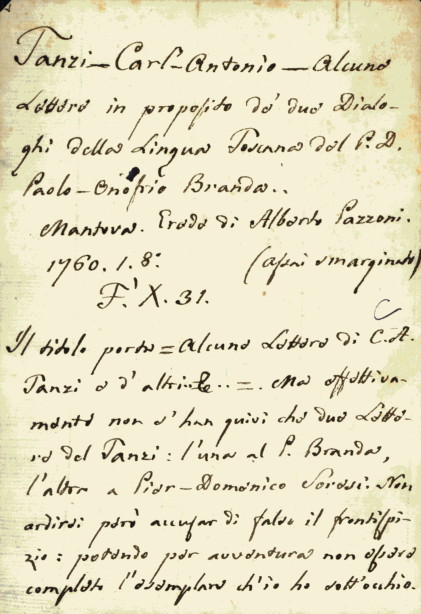 Tanzi – Carl' Antonio – Alcune
Lettere in proposito de' due Dialo-
ghi della Lingua Toscana del P. D.
Paolo-Onofrio Branda..
Mantova. Erede di Alberto Pazzoni.
1760. 1. 8: (assai smarginato)
F.' X. 31.
Il titolo porta = Alcune Lettere di C. A.
Tanzi e d' altri.. & .. =. Ma effettiva-
mente non s' han quivi che due Lette-
re del Tanzi: l'una al P. Branda,
l'altra a Pier-Domenico Soresi. Non
ardirei però accusar di falso il frontispi-
zio: potendo per avventura non essere
completo l'esemplare ch'io ho sott'occhio.